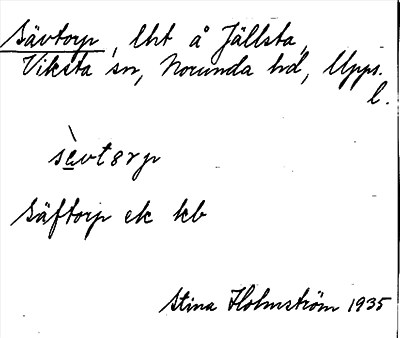 Sävtorp, lht å Jällsta,
Viksta sn, Norunda hd, Upps.
l.
sὲvtɘrp
Säftorp ek kb
Stina Holmström 1935